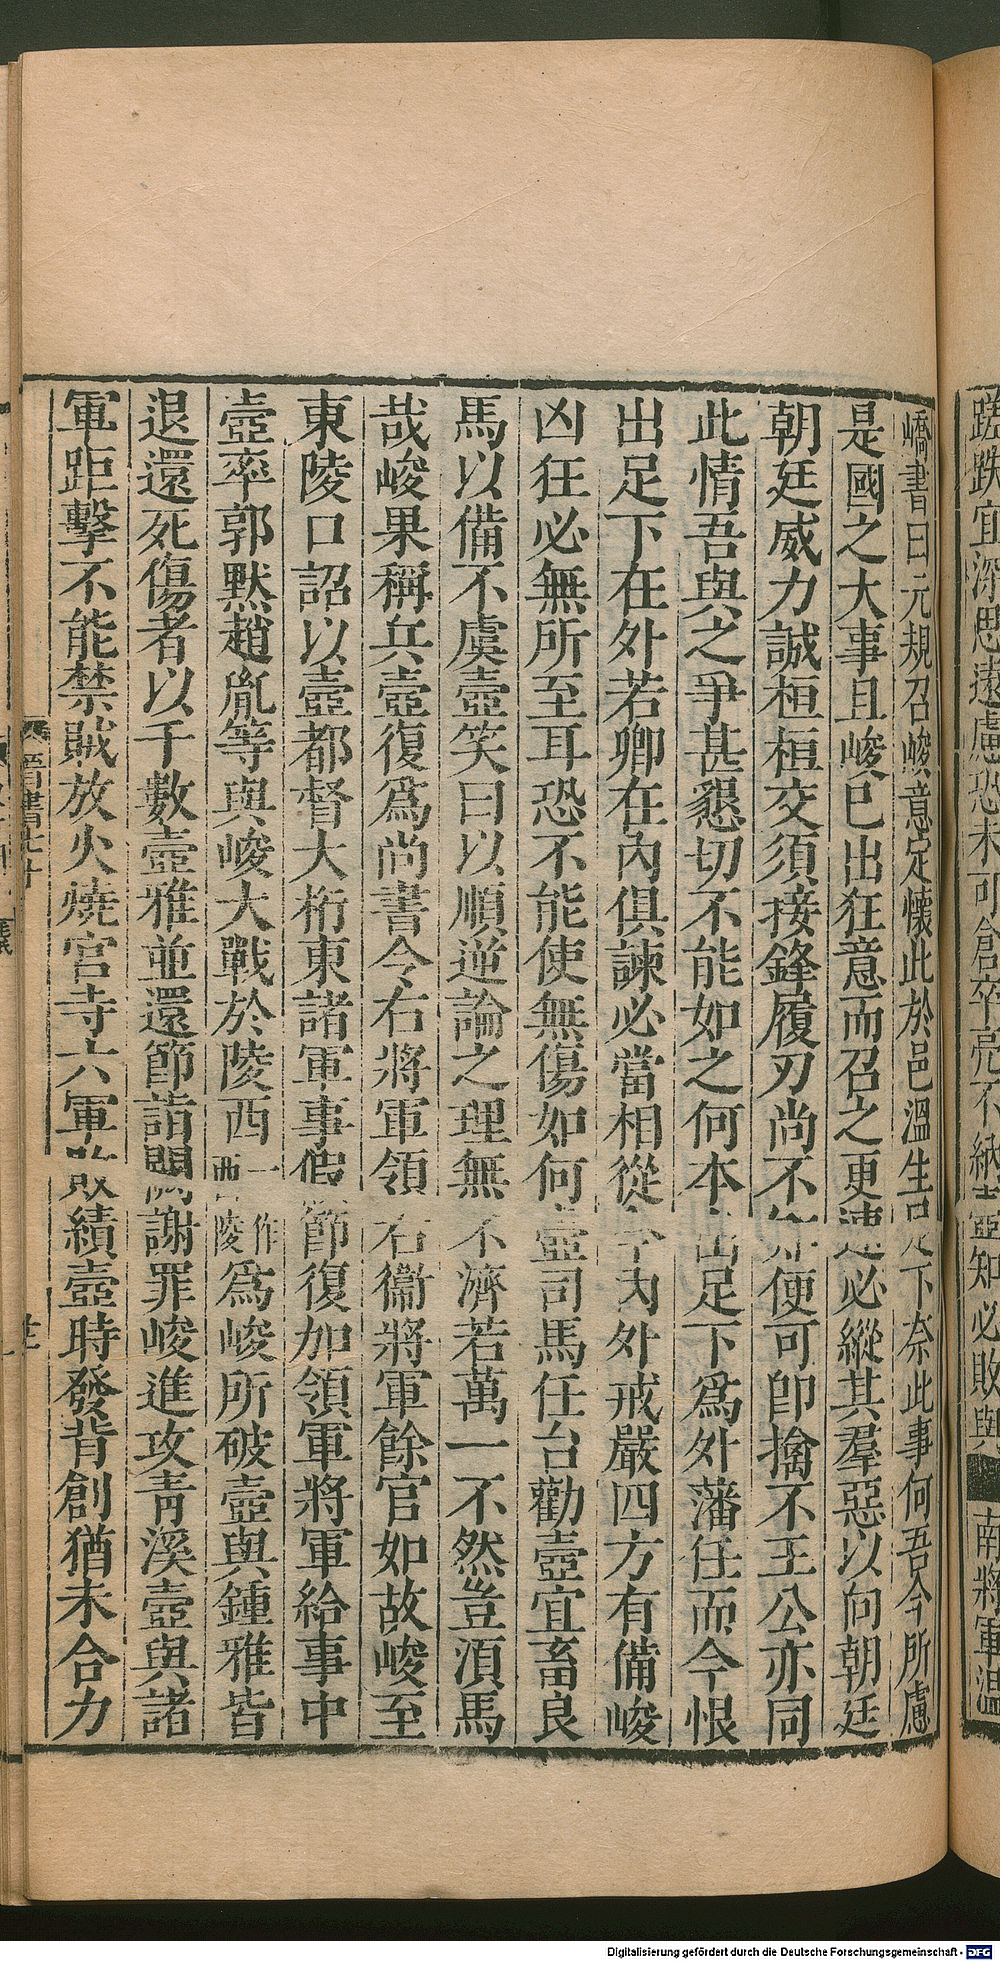 蹉跌宜深思遠慮恐未可倉卒亮不納壼知必敗與 南將軍溫
嶠書曰元規召峻意定懷此於邑溫生足下奈此事何吾今所慮
是國之大事且峻已出狂意而召之更速必縱其羣惡以向朝廷
朝廷威力誠桓桓交須接鋒履刃尚不知便可即擒不王公亦同
此情吾與之爭甚懇切不能如之何本出足下爲外藩任而今恨
出足下在外若卿在內俱諫必當相從今內外戒嚴四方有備峻
凶狂必無所至耳恐不能使無傷如何壼司馬任台勸壼宜畜良
馬以備不虞壼笑曰以順逆論之理無不濟若萬一不然豈須馬
哉峻果稱兵壼復爲尚書令右將軍領右衞將軍餘官如故峻至
東陵口詔以壼都督大桁東諸軍事假節復加領軍將軍給事中
壼率郭默趙胤等與峻大戰於陵西一作西陵爲峻所破壼與鍾雅皆
退還死傷者以千數壼雅並還節詣闕謝罪峻進攻青溪壼與諸
軍距擊不能禁賊放火燒宮寺六軍敗績壼時發背創猶未合力
晉書七十
Digitalisierung gefördert durch die Deutsche Forschungsgemeinschaft - DFG